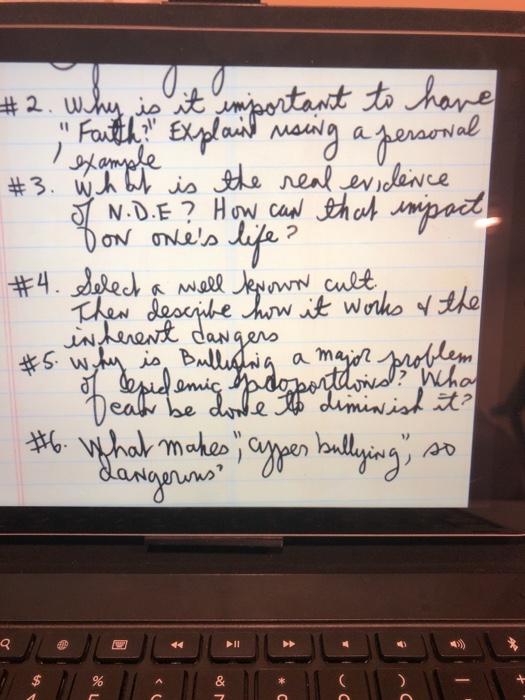 #2. Why is it important to have
"Faith?" Explain using a personal
example
#3. What is the real evidence
of N.D.E? How can that impact
on one's life?
#4. Select a well known cult.
Then describe how it works & the
inherent dangers
#5. Why is Bullying a major problem
of epidemic proportions? Wha
can be done to diminish it?
#6. What makes "cyper bullying", so
dangerous?
$ % ^ & * ( ) — +